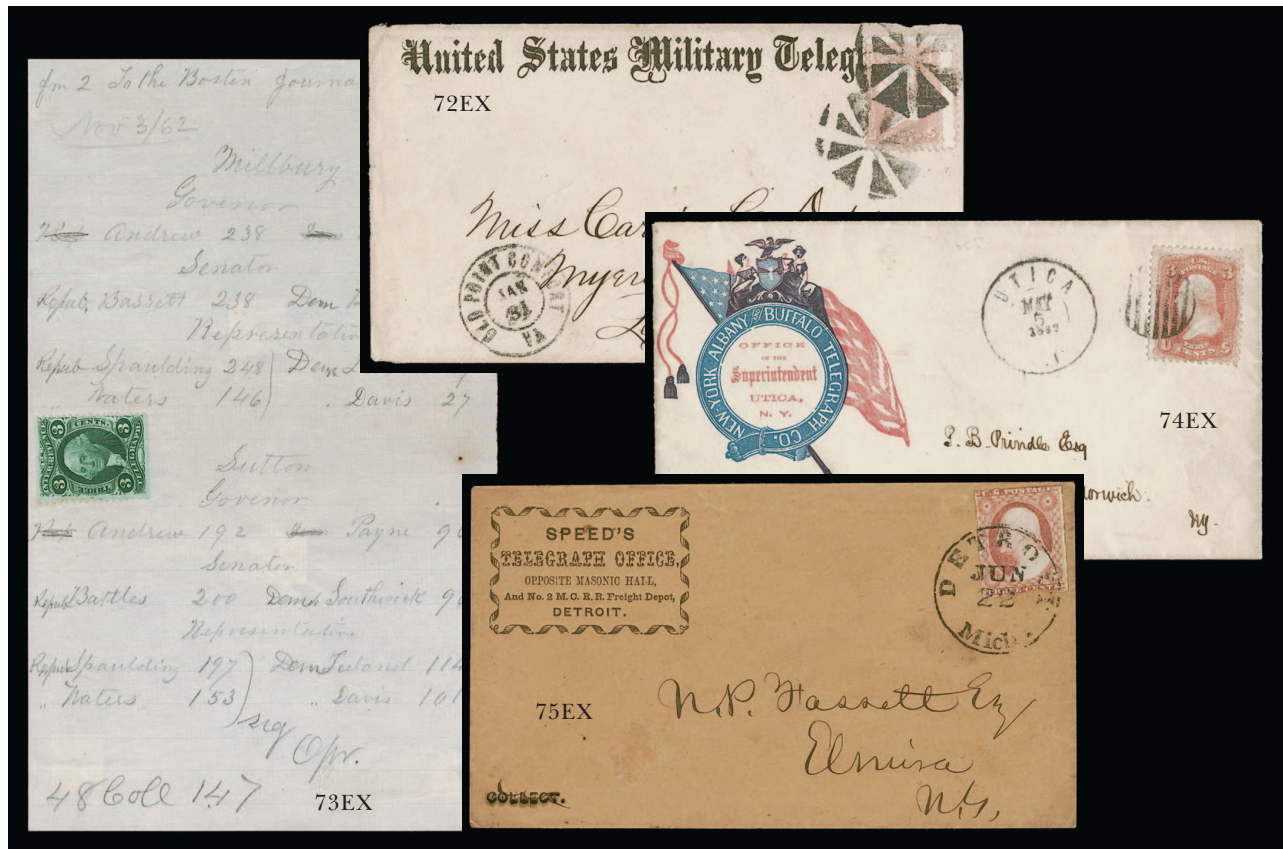 fm 2 To the Boston Journa
Nov 3/62
Millbury
Govenor
Andrew 238
Senator
Repub. Bassett 238 Dem
Representativ
Repub Spaulding 248 Dem
" Waters 146 " Davis 27
Sutton
Govenor
Andrew 192 Payne 96
Senator
Repub Battles 200 Dem Southwick 96
Representative
Repub Spaulding 197 Dem Ireland 114
" Waters 153 " Davis 101
sig
Opr.
48 Coll 147
73EX
3 CENTS 3
3 3
United States Military Telegr
72EX
Miss Car
Myer
OLD POINT COMFORT
JAN
31
VA
NEW-YORK ALBANY AND BUFFALO TELEGRAPH CO.
OFFICE
OF THE
Superintendent
UTICA,
N. Y.
UTICA
MAY
5
3 3
CENTS
74EX
J. B. Prindle Esq
Norwich.
Ny.
SPEED'S
TELEGRAPH OFFICE,
OPPOSITE MASONIC HALL,
And No. 2 M. C. R. R. Freight Depot,
DETROIT.
U.S. POSTAGE
DETRO
JUN
22
Mich.
75EX
N. P. Fassett Esq
Elmira
N.Y.
COLLECT.